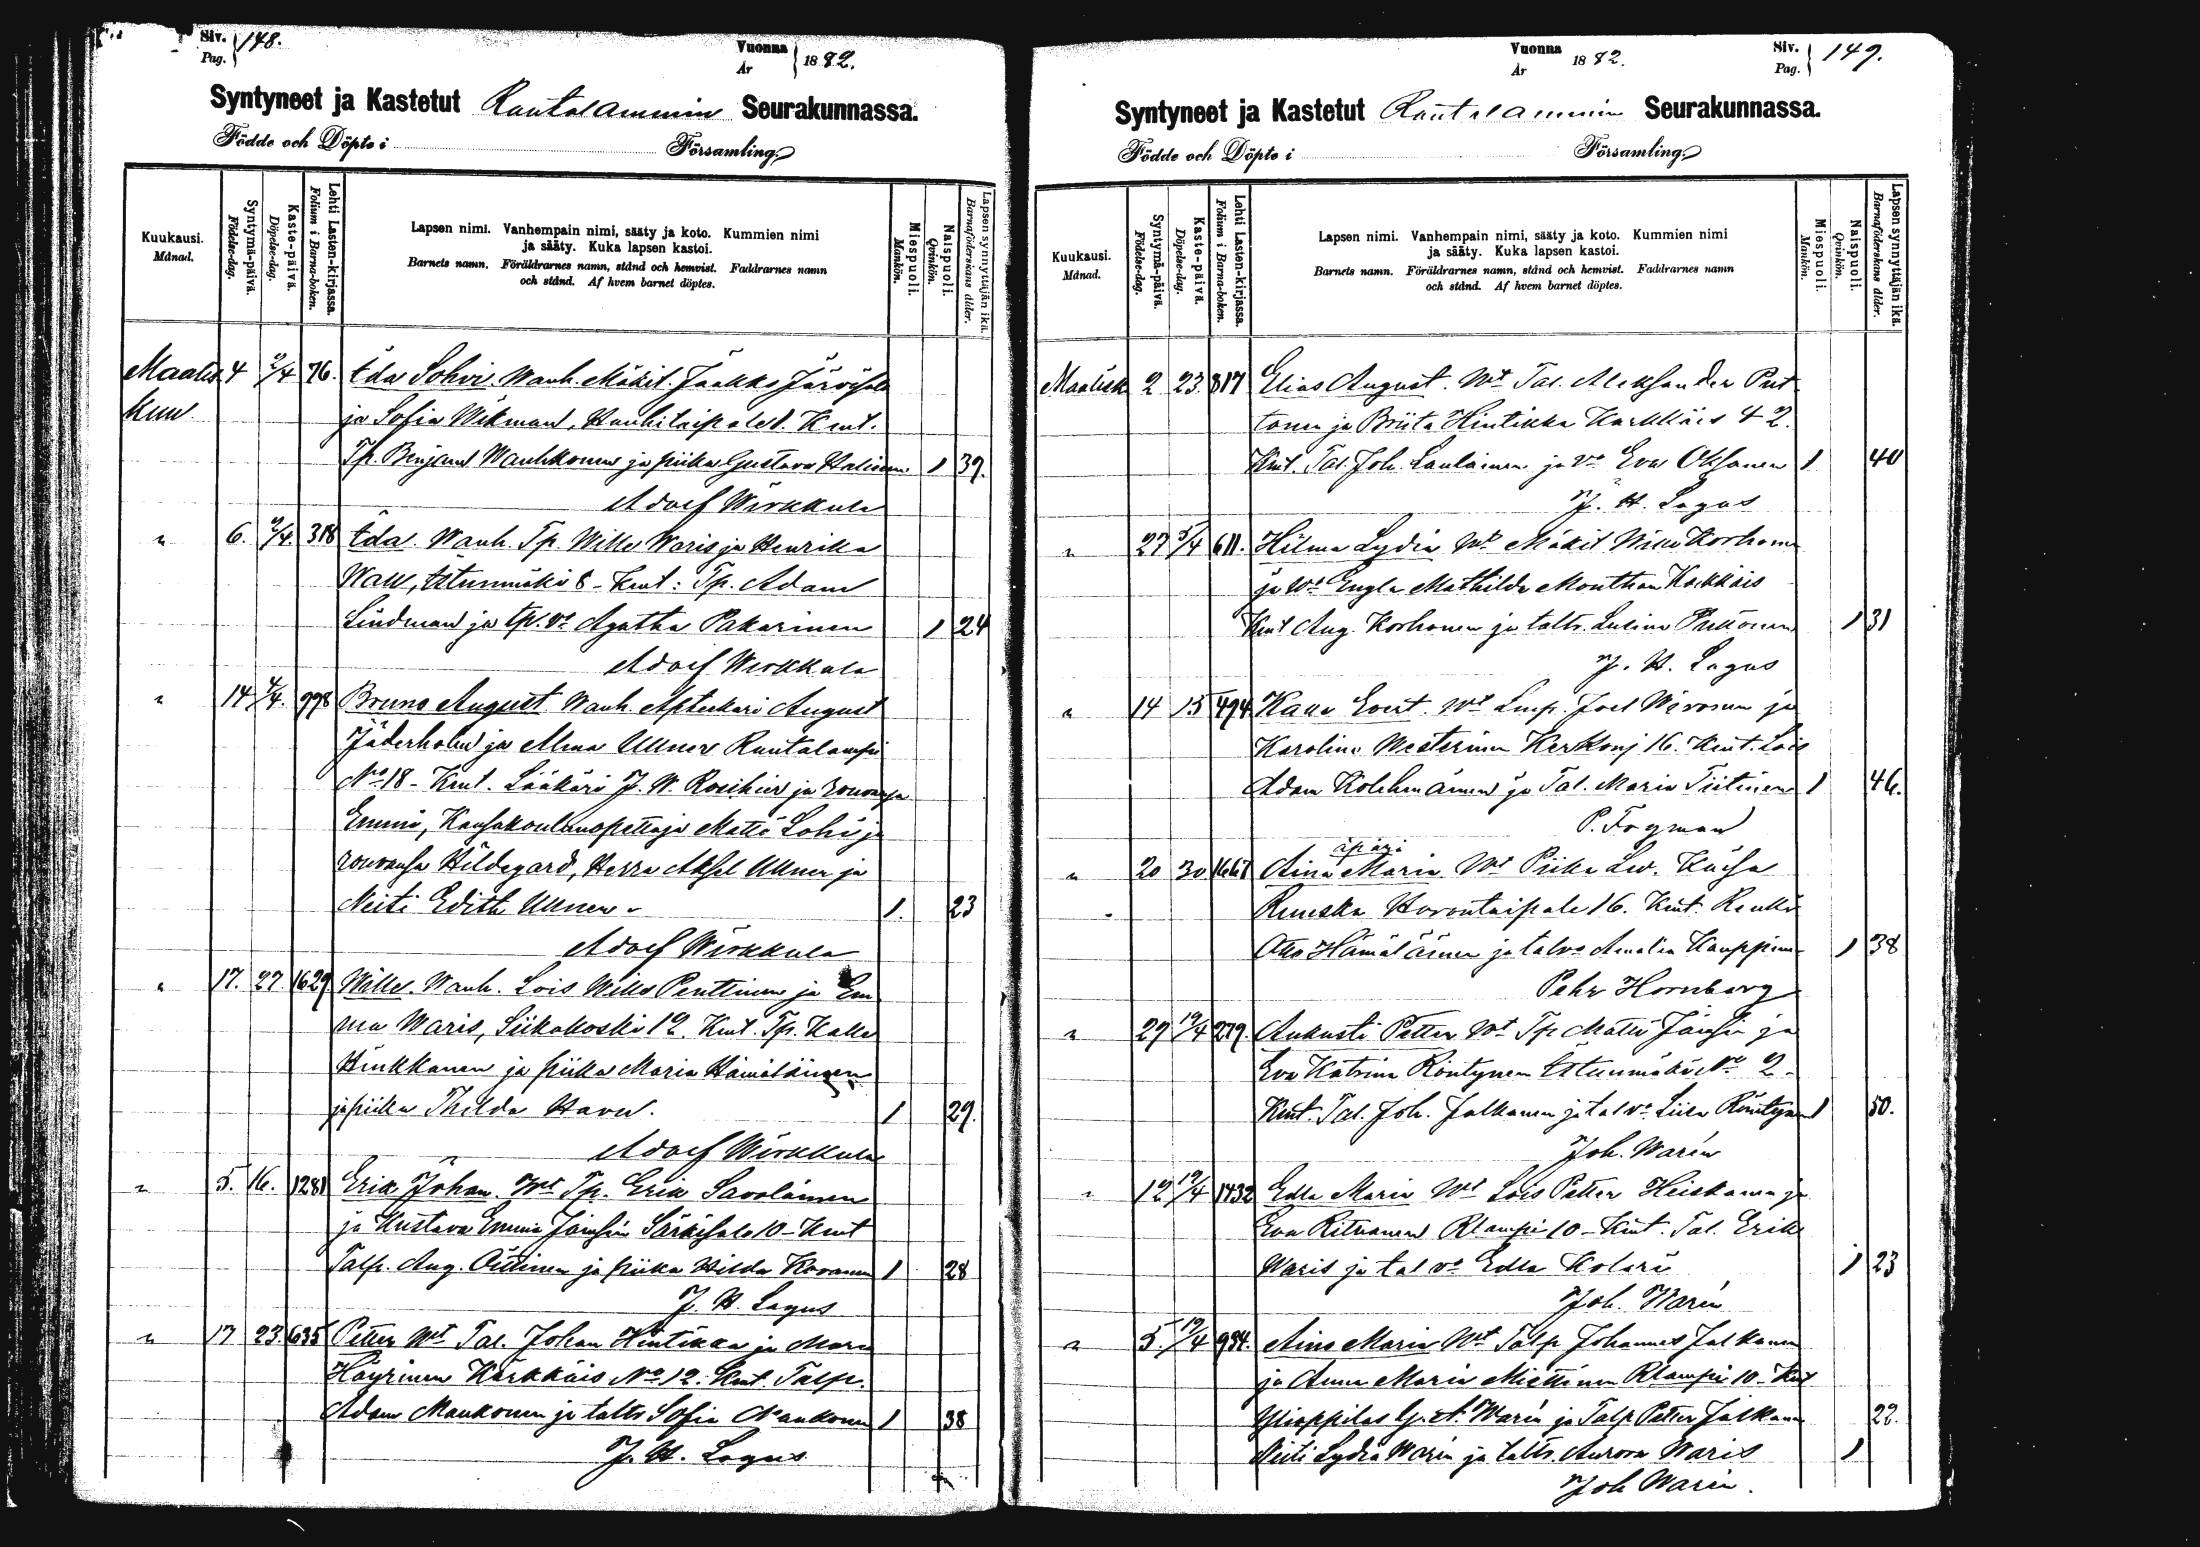 Siv. Pag. 148.
Vuonna År 1882.
Syntyneet ja Kastetut Rautalammin Seurakunnassa.
Födde och Döpte i Församling.
Kuukausi. Månad.
Syntymä-päivä. Födelse-dag.
Kaste-päivä. Döpelse-dag.
Lehti Lasten-kirjassa. Folium i Barna-boken.
Lapsen nimi. Vanhempain nimi, sääty ja koto. Kummien nimi
ja sääty. Kuka lapsen kastoi.
Barnets namn. Föräldrarnes namn, stånd och hemvist. Faddrarnes namn
och stånd. Af hvem barnet döptes.
Miespuoli. Mankön.
Naispuoli. Qvinkön.
Lapsen synnyttäjän ikä. Barnaföderskans ålder.
Maalis 4 2/4 76. Ida Sohvi. Wanh. Mäkit. Jaakko
kuu. ja Sofia Wikman, Hanhitaipale 1. Kmt.
Tp. Benjam Wanhkonen ja piika Gustava Halinen 1 39.
Adolf Wirkkula
" 6. 2/4. 318 Ida. Wanh. Tp. Wille Waris ja Henrika
8 - Kmt: Tp. Adam
Lindman ja tp. vo Agatha Pakarinen 1 24
Adolf Wirkkula
" 14 4/4. 998 Bruno August Wanh. Aptekari August
Jäderholm ja Alma Ullner Rautalampi
No 18 - Kmt. Lääkäri J. W. Rosihier ja rouvansa
Emmi, Kansakoulunopettaja Matti Lohi ja
rouvansa Hildegard, Herra Aksel Ullner ja
Neiti Edith Ullner - 1. 23
Adolf Wirkkula
" 17. 27. 1629 Wille. Wanh. Lois Wille Penttinen ja Em
ma Waris, Siikakoski 12. Kmt. Tp. Kalle
Hinkkanen ja piika Maria Hämäläinen
ja piika Thilda 1 29.
Adolf Wirkkula
" 5. 16. 1281 Erik Johan. Wt Tp. Erik Savolainen
ja Kustava Emma Jämsin Särkisalo 10 - Kmt
Talp. Aug. ja piika Hilda Kovanen 1 28
J. H. Lagus
" 17 23. 635 Petter Wt Tal. Johan Hintikka ja Maria
Häyrinen Kärkkäis No 12. Kmt. Talp.
Adam Maukonen ja taltr Sofia Maukonen 1 38
J. H. Lagus
Vuonna År 1882.
Siv. Pag. 149.
Syntyneet ja Kastetut Rautalammin Seurakunnassa.
Födde och Döpte i Församling.
Kuukausi. Månad.
Syntymä-päivä. Födelse-dag.
Kaste-päivä. Döpelse-dag.
Lehti Lasten-kirjassa. Folium i Barna-boken.
Lapsen nimi. Vanhempain nimi, sääty ja koto. Kummien nimi
ja sääty. Kuka lapsen kastoi.
Barnets namn. Föräldrarnes namn, stånd och hemvist. Faddrarnes namn
och stånd. Af hvem barnet döptes.
Miespuoli. Mankön.
Naispuoli. Qvinkön.
Lapsen synnyttäjän ikä. Barnaföderskans ålder.
Maalisk 2 23. 817 Elias August. Wt Tal. Aleksander Put
tonen ja Briita Hintikka Kärkkäis 42.
Kmt. Tal. Joh. Laulainen ja vo Eva Oksanen 1 40
J. H. Lagus
" 27 5/4 611. Hilma Lydia Wt Mäkit Korhonen
ja Wo Engla Mathilda Kärkkäis
Kmt Aug. Korhonen ja taltr. 1 31
J. H. Lagus
" 14 15 494 Kalle Evert. Wt Lmp. Joel Wirosen ja
Karolina Westerinen Kerkonj. 16. Kmt. Lois
Adam Kolehmainen ja Tal. Maria Tiitinen 1 46.
P. Fogman
äpärä
" 20 30 1667 Aina Maria. Wt Piika Lov. Kaisa
Ruuska Horontaipale 16. Kmt. Renki
Otto Hämäläinen ja talvo Amalia Kauppinen 1 38
Pehr Hornborg
" 29 19/4 279. Aukusti Petter Wt Tp. Matti Jämsin ja
Eva Katrina Röntynen Istunmäki No 2 -
Kmt. Tal. Joh. Jalkanen ja tal vo Liisa Röntynen 1 50.
Joh. Warén
" 12 19/4 1432 Edla Maria Wt Lois Petter Heiskanen ja
Eva Ritvanen Rlampi 10 - Kmt. Tal. Erik
Waris ja tal vo Edla Kolari 1 23
Joh. Warén
" 5. 19/4 984. Aino Maria Wt Talp. Johannes Jalkanen
ja Anna Maria Miettinen Rlampi 10 - Kmt
Ylioppilas G. A. Warén ja Talp Petter Jalkanen 22.
Neiti Lydia Warén ja taltr. Aurora Waris 1
Joh Warén.